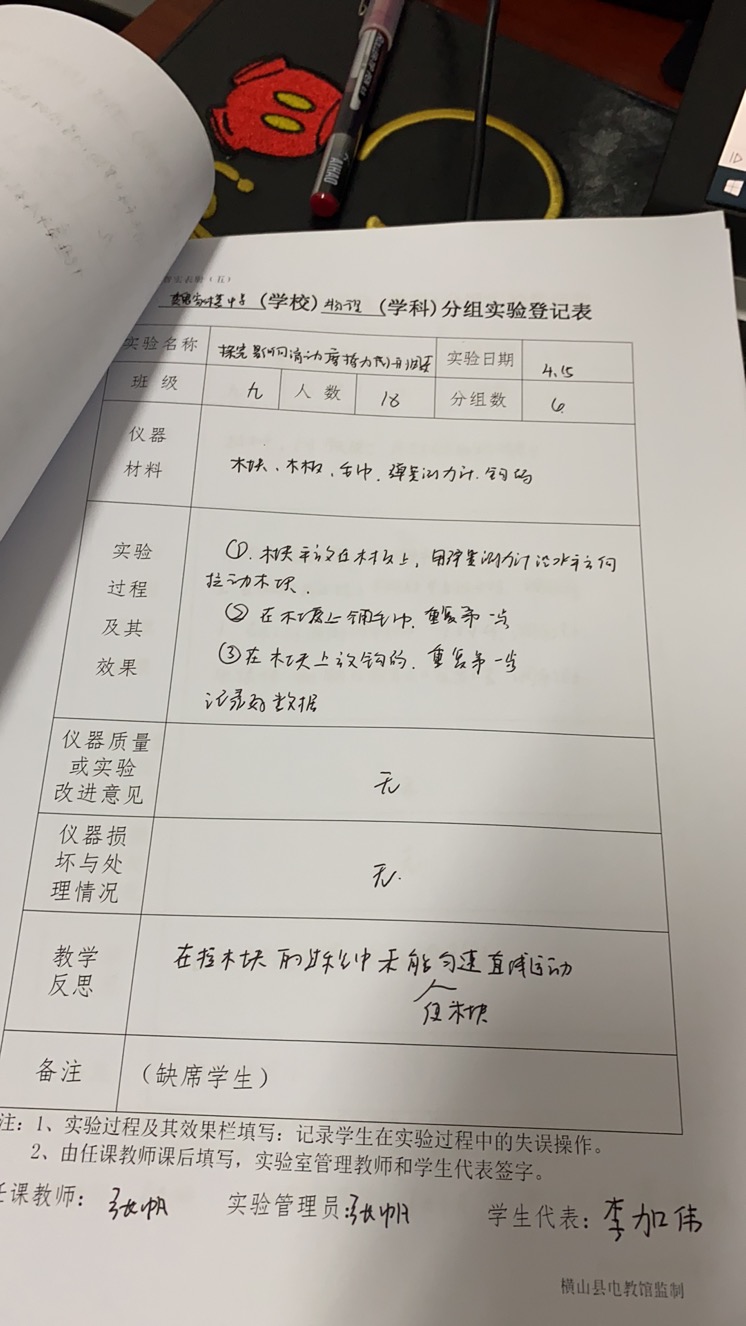 (学校)物理(学科)分组实验登记表
实验名称 探究影响滑动摩擦力的因素 实验日期 4.15
班级 九 人数 18 分组数 6.
仪器材料 木块、木板、毛巾、弹簧测力计、钩码
实验过程及其效果
①.木块平放在木板上,用弹簧测力计沿水平方向
拉动木块.
②在木板上铺毛巾,重复第一步
③在木块上放钩码,重复第一步
记录好数据
仪器质量或实验改进意见 无
仪器损坏与处理情况 无.
教学反思 在拉木块的过程中未能匀速直线运动
使木块
备注 (缺席学生)
注:1、实验过程及其效果栏填写:记录学生在实验过程中的失误操作。
2、由任课教师课后填写,实验室管理教师和学生代表签字。
任课教师:张帆 实验管理员:张帆 学生代表:李加伟
横山县电教馆监制
AIHAO